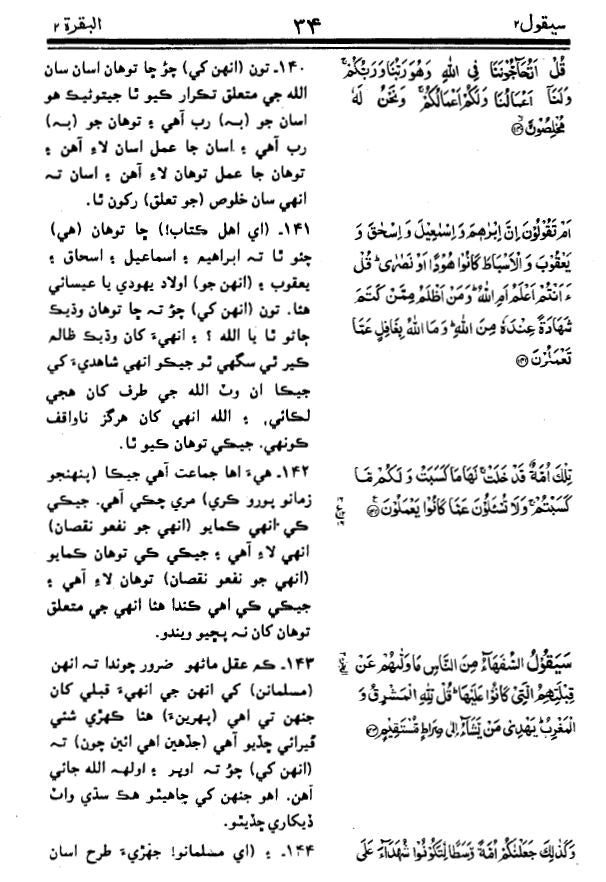 سيقول ٢ ٣۴ البقرة ٢
قُلْ اَتُحَآجُّوْنَنَا فِي اللّٰهِ وَهُوَ رَبُّنَا وَرَبُّكُمْ ۚ
وَلَنَآ اَعْمَالُنَا وَلَكُمْ اَعْمَالُكُمْ ۚ وَنَحْنُ لَهٗ
مُخْلِصُوْنَ ۙ
١۴٠ـ تون (انهن کي) چؤ ڇا توهان اسان سان
الله جي متعلق تڪرار ڪيو ٿا جيتوڻيڪ هو
اسان جو (بہ) رب آهي ۽ توهان جو (بہ)
رب آهي ۽ اسان جا عمل اسان لاءِ آهن ۽
توهان جا عمل توهان لاءِ آهن ۽ اسان تہ
انهي سان خلوص (جو تعلق) رکون ٿا.
اَمْ تَقُوْلُوْنَ اِنَّ اِبْرٰهٖمَ وَ اِسْمٰعِيْلَ وَ اِسْحٰقَ وَ
يَعْقُوْبَ وَ الْاَسْبَاطَ كَانُوْا هُوْدًا اَوْ نَصٰرٰى ؕ قُلْ
ءَ اَنْتُمْ اَعْلَمُ اَمِ اللّٰهُ ؕ وَ مَنْ اَظْلَمُ مِمَّنْ كَتَمَ
شَهَادَةً عِنْدَهٗ مِنَ اللّٰهِ ؕ وَ مَا اللّٰهُ بِغَافِلٍ عَمَّا
تَعْمَلُوْنَ
١۴١ـ (اي اهل ڪتاب!) ڇا توهان (هي)
چئو ٿا تہ ابراهيم ۽ اسماعيل ۽ اسحاق ۽
يعقوب ۽ (انهن جو) اولاد يهودي يا عيسائي
هئا. تون (انهن کي) چؤ تہ ڇا توهان وڌيڪ
ڄاڻو ٿا يا الله ؟ ۽ انهيءَ کان وڌيڪ ظالم
ڪير ٿي سگهي ٿو جيڪو انهي شاهديءَ کي
جيڪا ان وٽ الله جي طرف کان هجي
لڪائي, ۽ الله انهي کان هرگز ناواقف
ڪونهي. جيڪي توهان ڪيو ٿا.
تِلْكَ اُمَّةٌ قَدْ خَلَتْ ۚ لَهَا مَا كَسَبَتْ وَ لَكُمْ مَّا
كَسَبْتُمْ ۚ وَلَا تُسْئَلُوْنَ عَمَّا كَانُوْا يَعْمَلُوْنَ
١۴٢ـ هيءَ اها جماعت آهي جيڪا (پنهنجو
زمانو پورو ڪري) مري چڪي آهي. جيڪي
ڪي انهي ڪمايو (انهي جو نفعو نقصان)
انهي لاءِ آهي ۽ جيڪي ڪي توهان ڪمايو
(انهي جو نفعو نقصان) توهان لاءِ آهي ۽
جيڪي ڪي اهي ڪندا هئا انهي جي متعلق
توهان کان نہ پڇيو ويندو.
سَيَقُوْلُ السُّفَهَآءُ مِنَ النَّاسِ مَا وَلّٰىهُمْ عَنْ
قِبْلَتِهِمُ الَّتِيْ كَانُوْا عَلَيْهَا ؕ قُلْ لِّلّٰهِ الْمَشْرِقُ وَ
الْمَغْرِبُ ؕ يَهْدِيْ مَنْ يَّشَآءُ اِلٰى صِرَاطٍ مُّسْتَقِيْمٍ
١۴٣ـ ڪم عقل ماڻهو ضرور چوندا تہ انهن
(مسلمانن) کي انهن جي انهيءَ قبلي کان
جنهن تي اهي (پهرين) هئا ڪهڙي شئي
ڦيرائي ڇڏيو آهي (جڏهين اهي ائين چون) تہ
(انهن کي) چؤ تہ اوڀر ۽ اولهہ الله جائي
آهن. اهو جنهن کي چاهيئو هڪ سڌي واٽ
ڏيکاري ڇڏيئو.
وَكَذٰلِكَ جَعَلْنٰكُمْ اُمَّةً وَّسَطًا لِّتَكُوْنُوْا شُهَدَآءَ عَلَى
١۴۴ـ ۽ (اي مسلمانو! جهڙيءَ طرح اسان